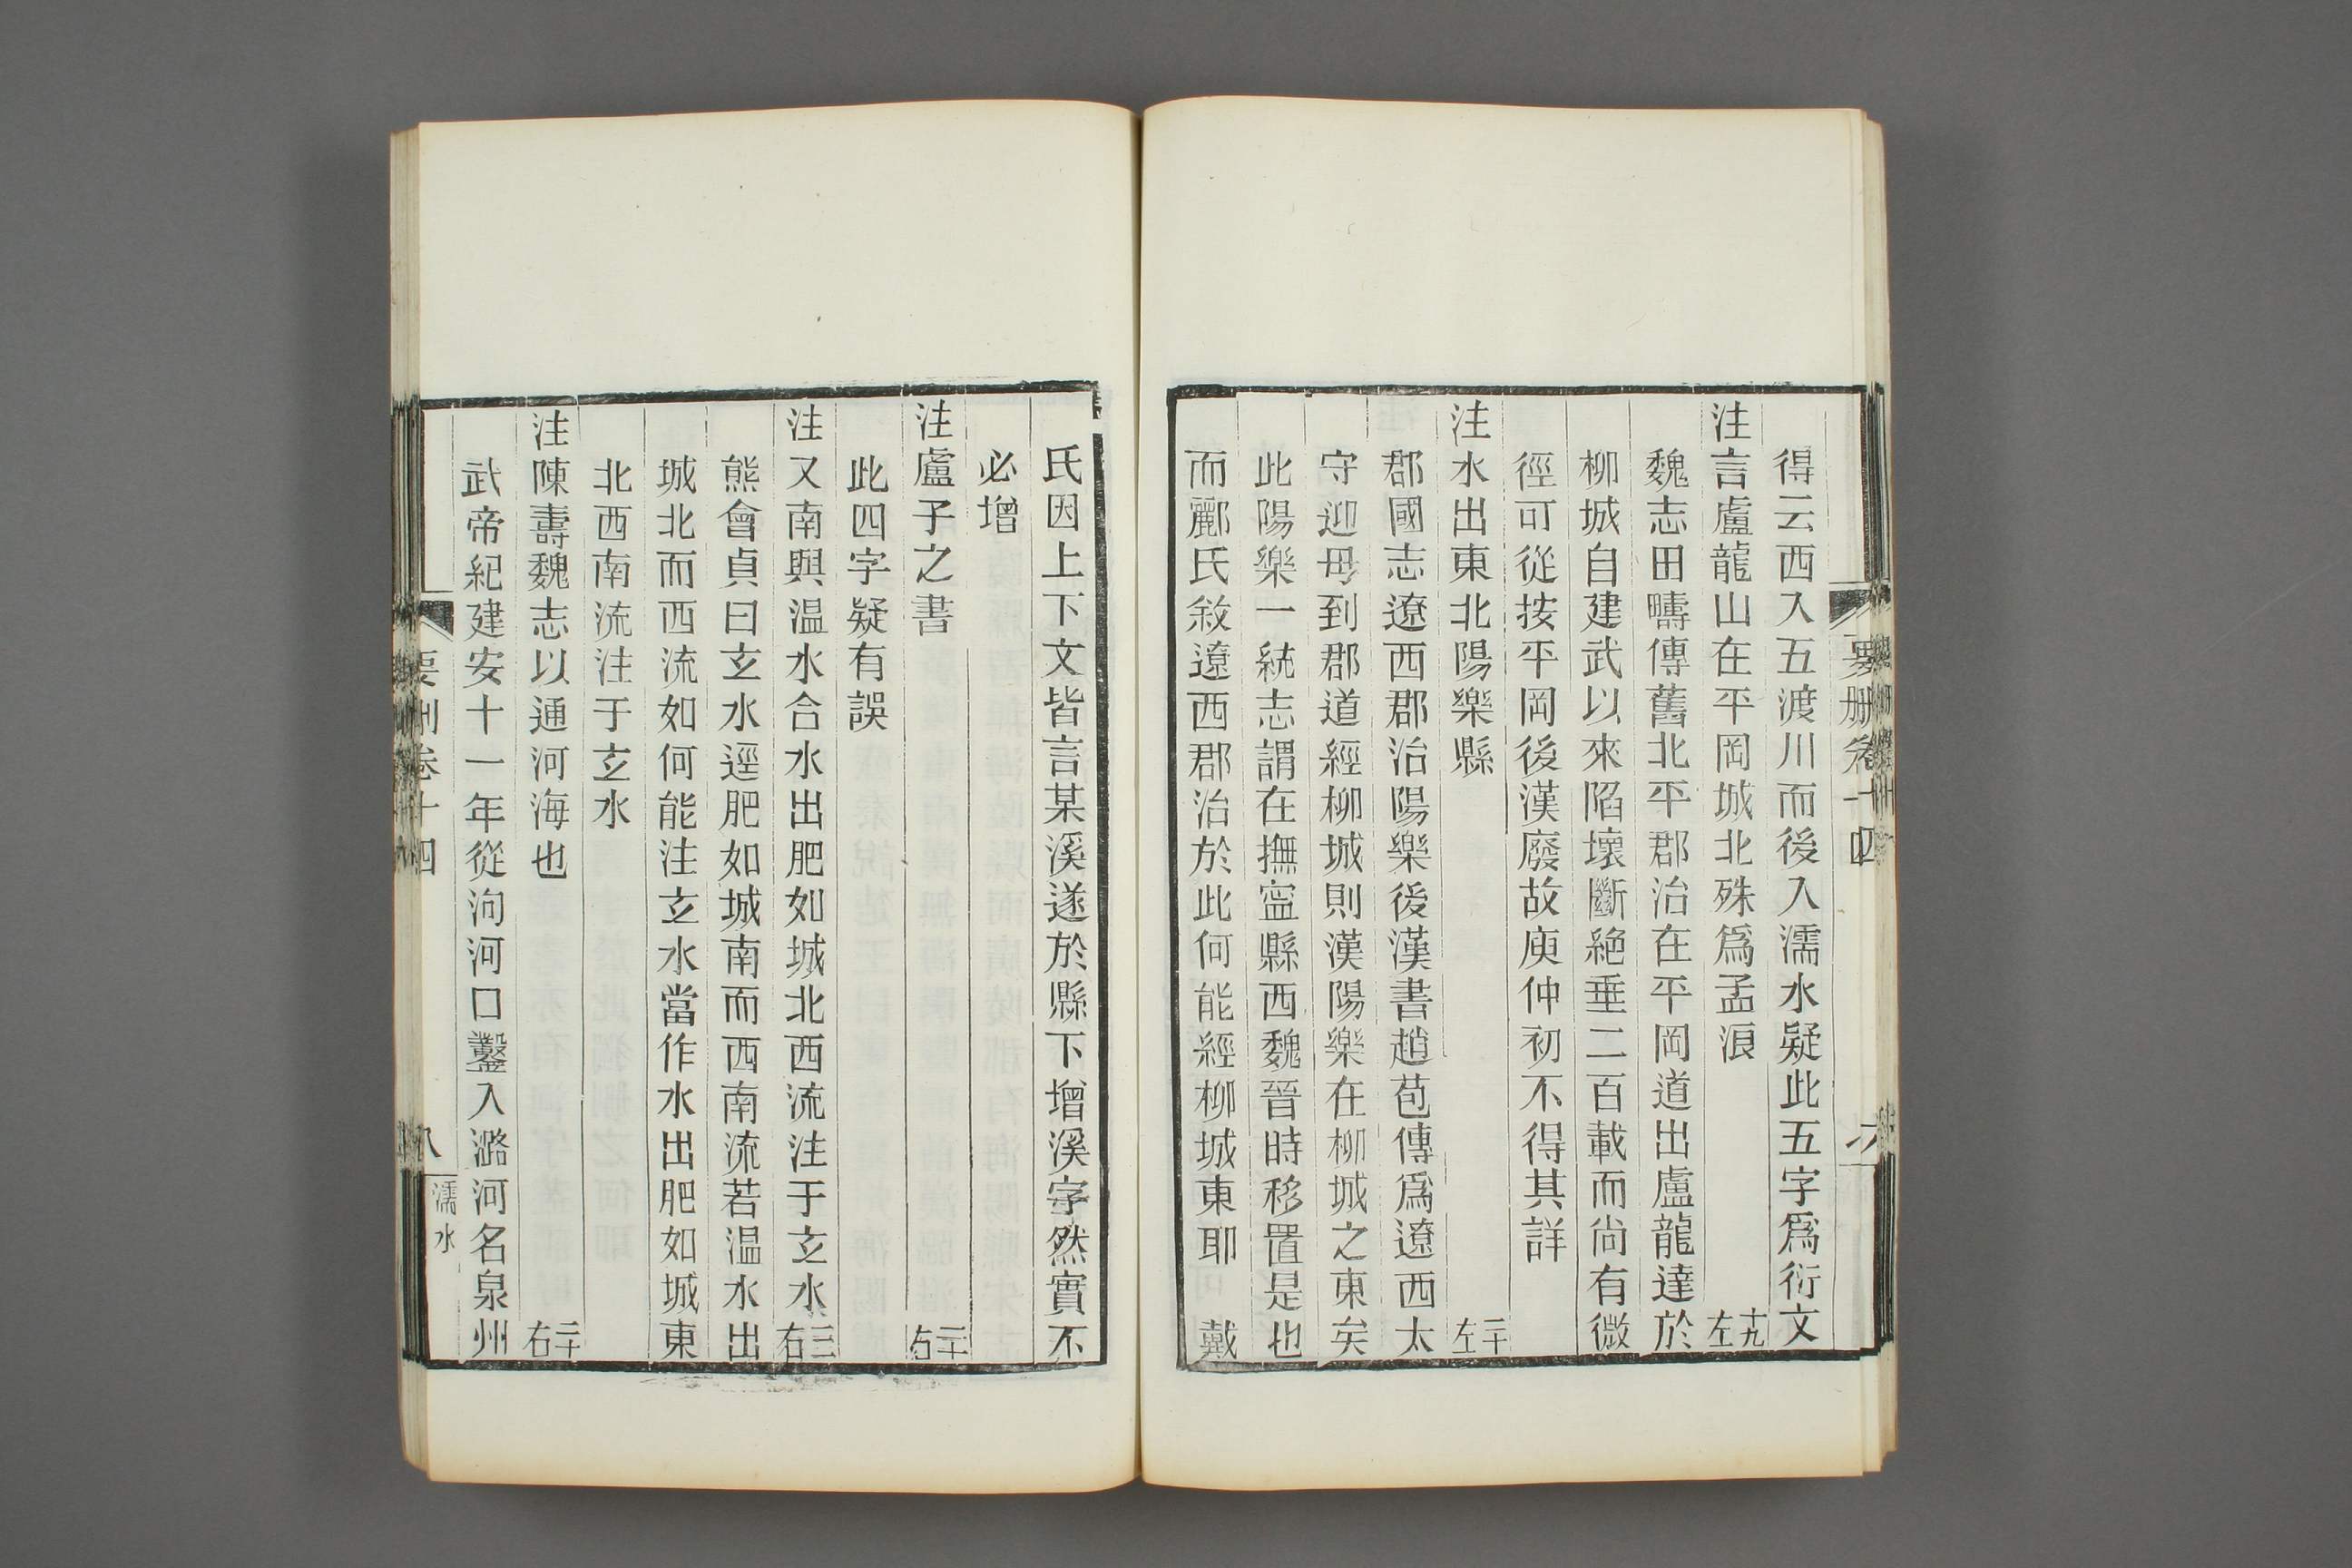 得云西入五渡川而後入濡水疑此五字爲衍文
注言盧龍山在平岡城北殊爲孟浪 十九左
魏志田疇傳舊北平郡治在平岡道出盧龍達於
柳城自建武以來陷壞斷絕垂二百載而尚有微
徑可從按平岡後漢廢故庾仲初不得其詳
注水出東北陽樂縣 二十左
郡國志遼西郡治陽樂後漢書趙苞傳爲遼西太
守迎母到郡道經柳城則漢陽樂在柳城之東矣
此陽樂一統志謂在撫寍縣西魏晉時移置是也
而酈氏敘遼西郡治於此何能經柳城東耶 戴
氏因上下文皆言某溪遂於縣下增溪字然實不
必增
注盧子之書 二十右
此四字疑有誤
注又南與温水合水出肥如城北西流注于玄水 二十右
熊會貞曰玄水逕肥如城南而西南流若温水出
城北而西流如何能注玄水當作水出肥如城東
北西南流注于玄水
注陳壽魏志以通河海也 二十右
武帝紀建安十一年從泃河口鑿入潞河名泉州
要刪卷十四
八
濡水